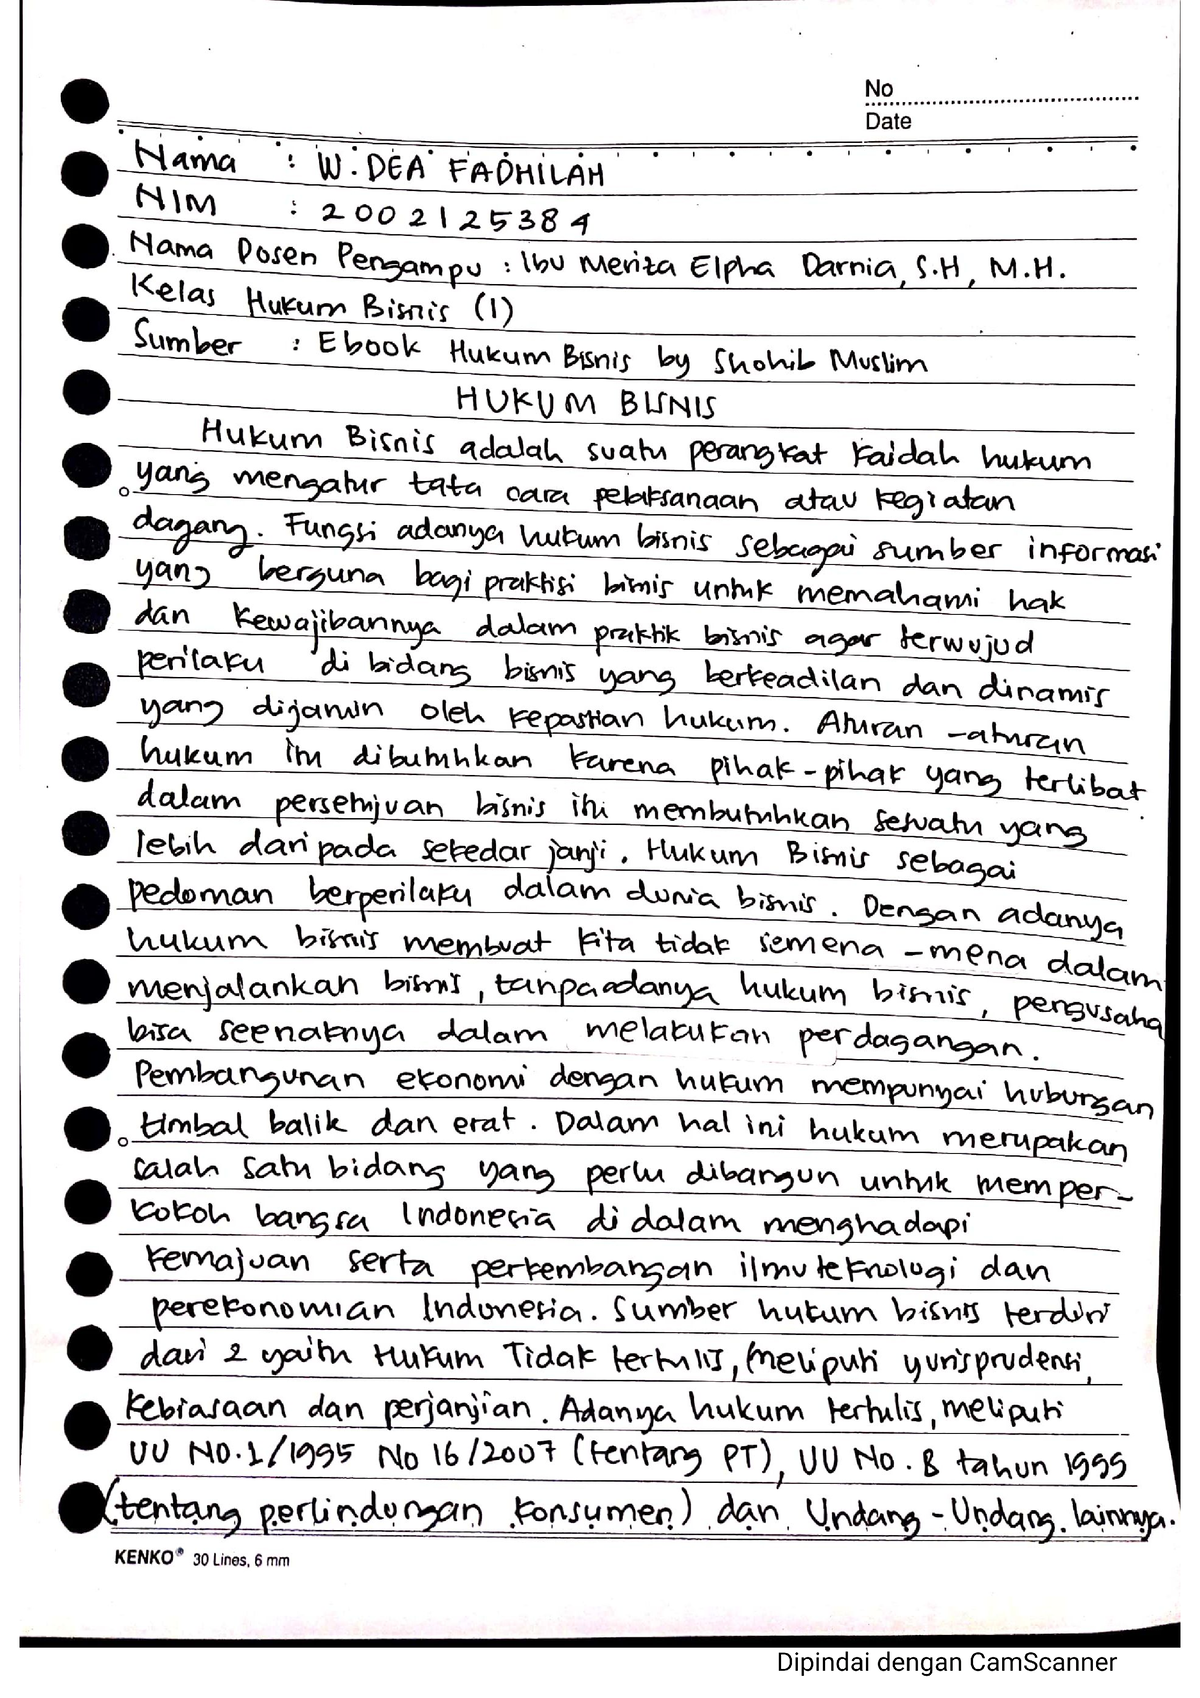 No
Date
Nama : W. DEA FADHILAH
NIM : 2002125384
Nama Dosen Pengampu : Ibu Meriza Elpha Darnia, S.H, M.H.
Kelas Hukum Bisnis (1)
Sumber : Ebook Hukum Bisnis by Shohib Muslim
HUKUM BISNIS
Hukum Bisnis adalah suatu perangkat kaidah hukum
yang mengatur tata cara pelaksanaan atau kegiatan
dagang. Fungsi adanya hukum bisnis sebagai sumber informasi
yang berguna bagi praktisi bisnis untuk memahami hak
dan kewajibannya dalam praktik bisnis agar terwujud
perilaku di bidang bisnis yang berkeadilan dan dinamis
yang dijamin oleh kepastian hukum. Aturan - aturan
hukum itu dibutuhkan karena pihak - pihak yang terlibat
dalam persetujuan bisnis itu membutuhkan sesuatu yang
lebih dari pada sekedar janji. Hukum Bisnis sebagai
pedoman berperilaku dalam dunia bisnis. Dengan adanya
hukum bisnis membuat kita tidak semena - mena dalam
menjalankan bisnis, tanpa adanya hukum bisnis, pengusaha
bisa seenaknya dalam melakukan perdagangan.
Pembangunan ekonomi dengan hukum mempunyai hubungan
timbal balik dan erat. Dalam hal ini hukum merupakan
salah satu bidang yang perlu dibangun untuk memper-
kokoh bangsa Indonesia di dalam menghadapi
kemajuan serta perkembangan ilmu teknologi dan
perekonomian Indonesia. Sumber hukum bisnis terdiri
dari 2 yaitu Hukum Tidak tertulis, meliputi yurisprudensi,
kebiasaan dan perjanjian. Adanya hukum tertulis, meliputi
UU NO.1/1995 No 16/2007 (tentang PT), UU No. 8 tahun 1999
(tentang perlindungan konsumen) dan Undang - Undang lainnya.
KENKO® 30 Lines, 6 mm
Dipindai dengan CamScanner